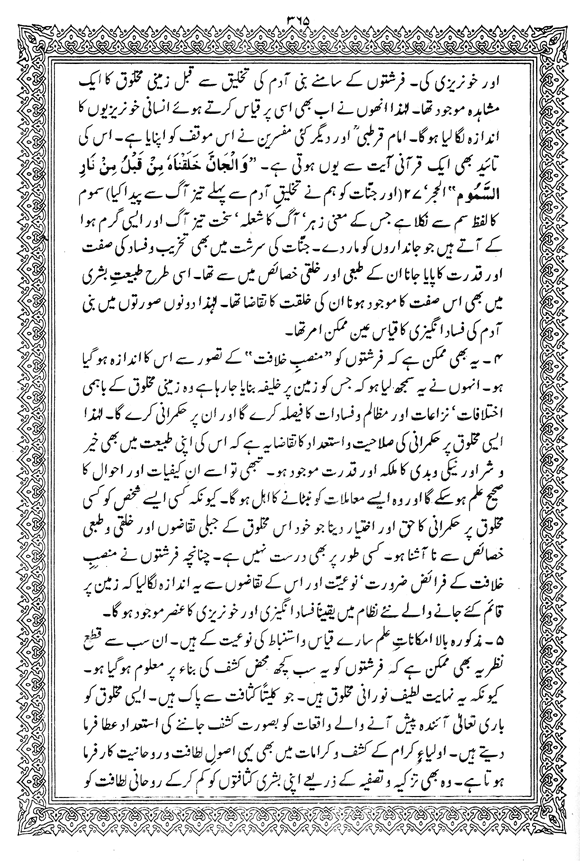 ۳۶۵
اور خونریزی کی۔ فرشتوں کے سامنے بنی آدم کی تخلیق سے قبل زمینی مخلوق کا ایک
مشاہدہ موجود تھا۔ لہٰذا انھوں نے اب بھی اسی پر قیاس کرتے ہوئے انسانی خونریزیوں کا
اندازہ لگا لیا ہو گا۔ امام قرطبیؒ اور دیگر کئی مفسرین نے اس موقف کو اپنایا ہے۔ اس کی
تائید بھی ایک قرآنی آیت سے یوں ہوتی ہے۔ ”وَالْجَانَّ خَلَقْنَاهُ مِنْ قَبْلُ مِنْ نَارِ
السَّمُوم“ الحجر‘ ۲۷ (اور جنّات کو ہم نے تخلیقِ آدم سے پہلے تیز آگ سے پیدا کیا) سموم
کا لفظ سم سے نکلا ہے جس کے معنی زہر‘ آگ کا شعلہ‘ سخت تیز آگ اور ایسی گرم ہوا
کے آتے ہیں جو جانداروں کو مار دے۔ جنّات کی سرشت میں بھی تخریب و فساد کی صفت
اور قدرت کا پایا جانا ان کے طبعی اور خلقی خصائص میں سے تھا۔ اسی طرح طبیعتِ بشری
میں بھی اس صفت کا موجود ہونا ان کی خلقت کا تقاضا تھا۔ لہٰذا دونوں صورتوں میں بنی
آدم کی فساد انگیزی کا قیاس عین ممکن امر تھا۔
۴ ۔ یہ بھی ممکن ہے کہ فرشتوں کو ”منصبِ خلافت“ کے تصور سے اس کا اندازہ ہو گیا
ہو۔ انہوں نے یہ سمجھ لیا ہو کہ جس کو زمین پر خلیفہ بنایا جا رہا ہے وہ زمینی مخلوق کے باہمی
اختلافات‘ نزاعات اور مظالم و فسادات کا فیصلہ کرے گا اور ان پر حکمرانی کرے گا۔ لہٰذا
ایسی مخلوق پر حکمرانی کی صلاحیت و استعداد کا تقاضا یہ ہے کہ اس کی اپنی طبیعت میں بھی خیر
و شر اور نیکی و بدی کا ملکہ اور قدرت موجود ہو۔ تبھی تو اسے ان کیفیات اور احوال کا
صحیح علم ہو سکے گا اور وہ ایسے معاملات کو نبٹانے کا اہل ہو گا۔ کیونکہ کسی ایسے شخص کو کسی
مخلوق پر حکمرانی کا حق اور اختیار دینا جو خود اس مخلوق کے جبلی تقاضوں اور خلقی و طبعی
خصائص سے نا آشنا ہو۔ کسی طور پر بھی درست نہیں ہے۔ چنانچہ فرشتوں نے منصبِ
خلافت کے فرائض ضرورت‘ نوعیّت اور اس کے تقاضوں سے یہ اندازہ لگا لیا کہ زمین پر
قائم کئے جانے والے نئے نظام میں یقیناً فساد انگیزی اور خونریزی کا عنصر موجود ہو گا۔
۵ ۔ مذکورہ بالا امکاناتِ علم سارے قیاس و استنباط کی نوعیت کے ہیں۔ ان سب سے قطع
نظر یہ بھی ممکن ہے کہ فرشتوں کو یہ سب کچھ محض کشف کی بناء پر معلوم ہو گیا ہو۔
کیونکہ یہ نہایت لطیف نورانی مخلوق ہیں۔ جو کلیتاً کثافت سے پاک ہیں۔ ایسی مخلوق کو
باری تعالٰی آئندہ پیش آنے والے واقعات کو بصورت کشف جاننے کی استعداد عطا فرما
دیتے ہیں۔ اولیاءِ کرام کے کشف و کرامات میں بھی یہی اصولِ لطافت و روحانیت کار فرما
ہوتا ہے۔ وہ بھی تزکیہ و تصفیہ کے ذریعے اپنی بشری کثافتوں کو کم کر کے روحانی لطافت کو